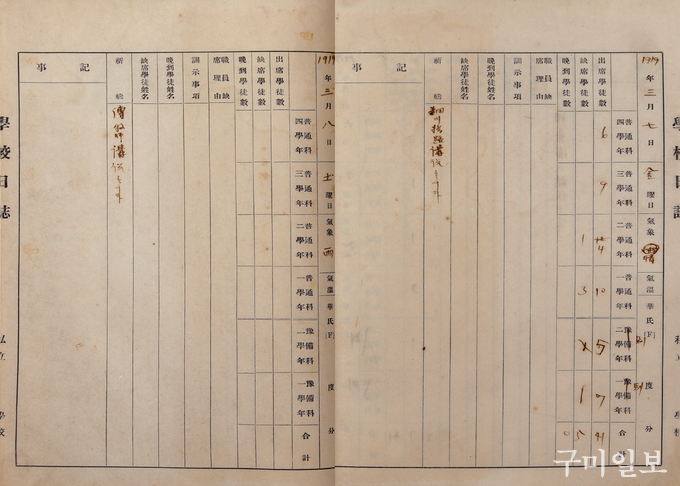 學校日誌
1919年三月七日金曜日 氣象 氣溫華氏(F) 度 分
出席學徒數
缺席學徒數
晚到學徒數
職員缺席理由
訓示事項
晚到學徒姓名
缺席學徒姓名
祈禱
記事
普通科四學年 6
普通科三學年 9
普通科二學年 4 1
普通科一學年 10 3
豫備科二學年 5
豫備科一學年 7 1
合計 41 5 0
1919年三月八日土曜日 氣象 雨 氣溫華氏(F) 度 分
出席學徒數
缺席學徒數
晚到學徒數
職員缺席理由
訓示事項
晚到學徒姓名
缺席學徒姓名
祈禱
記事
普通科四學年
普通科三學年
普通科二學年
普通科一學年
豫備科二學年
豫備科一學年
合計
學校日誌
私立 學校
구미일보